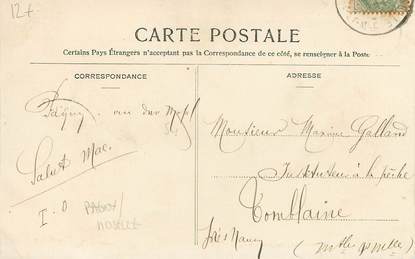 12+
CARTE POSTALE
Certains Pays Étrangers n'acceptant pas la Correspondance de ce côté, se renseigner à la Poste
CORRESPONDANCE
Pagny an der Mosel
Salut Mac.
PAGNY/
MOSELLE
ADRESSE
Monsieur Maxime Galland
Instituteur à la pêche
Tomblaine
près Nancy
(Mthe & Mlle)